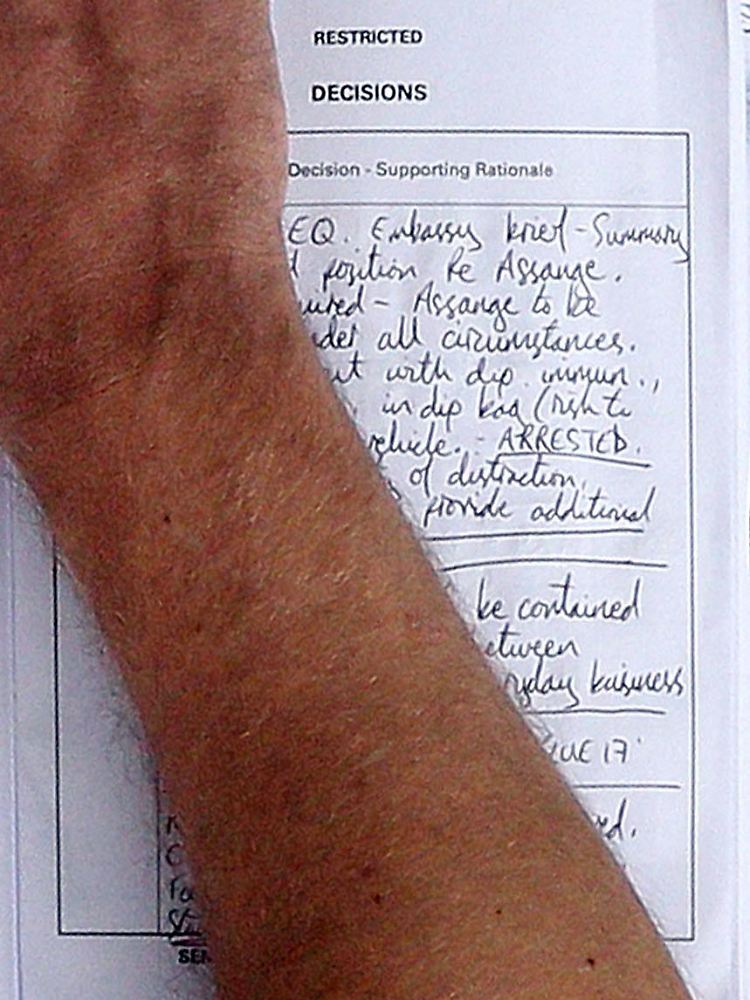 RESTRICTED
DECISIONS
Decision - Supporting Rationale
EQ. Embassy brief - Summary
position Re Assange.
- Assange to be
all circumstances.
with dip. immun.,
in dip bag (risk to
vehicle. - ARRESTED.
of distraction,
provide additional
be contained
business
17